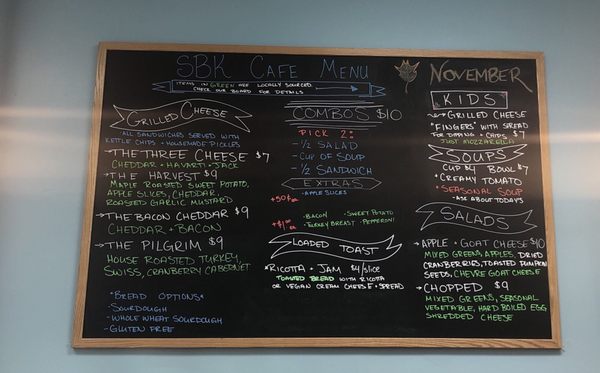 SBK CAFE MENU
ITEMS IN GREEN ARE LOCALLY SOURCED
CHECK OUR BOARD FOR DETAILS
NOVEMBER
GRILLED CHEESE
·ALL SANDWICHES SERVED WITH
KETTLE CHIPS + HOMEMADE PICKLES
→THE THREE CHEESE $7
CHEDDAR · HAVARTI · JACK
→THE HARVEST $9
MAPLE ROASTED SWEET POTATO,
APPLE SLICES, CHEDDAR,
ROASTED GARLIC MUSTARD
→THE BACON CHEDDAR $9
CHEDDAR + BACON
→THE PILGRIM $9
HOUSE ROASTED TURKEY,
SWISS, CRANBERRY CABERNET
*BREAD OPTIONS*
-SOURDOUGH
-WHOLE WHEAT SOURDOUGH
-GLUTEN FREE
COMBOS $10
PICK 2:
-1/2 SALAD
-CUP OF SOUP
-1/2 SANDWICH
EXTRAS
+50¢
·APPLE SLICES
+$1
·BACON ·SWEET POTATO
·TURKEY BREAST ·PEPPERONI
LOADED TOAST
*RICOTTA + JAM $4/SLICE
TOASTED BREAD WITH RICOTTA
OR VEGAN CREAM CHEESE + SPREAD
KIDS
→GRILLED CHEESE
*FINGERS* WITH SPREAD
FOR DIPPING + CHIPS $7
JUST MOZZARELLA
SOUPS
CUP $4 BOWL $7
*CREAMY TOMATO
*SEASONAL SOUP
-ASK ABOUT TODAYS
SALADS
→APPLE + GOAT CHEESE $10
MIXED GREENS, APPLES, DRIED
CRANBERRIES, TOASTED PUMPKIN
SEEDS, CHEVRE GOAT CHEESE
→CHOPPED $9
MIXED GREENS, SEASONAL
VEGETABLE, HARD BOILED EGG
SHREDDED CHEESE